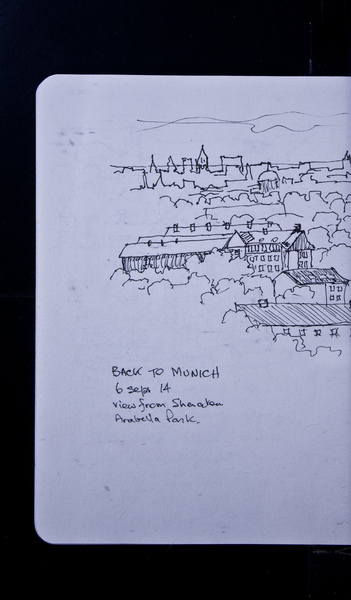 BACK TO MUNICH
6 sept 14
view from Sheraton
Arabella Park.